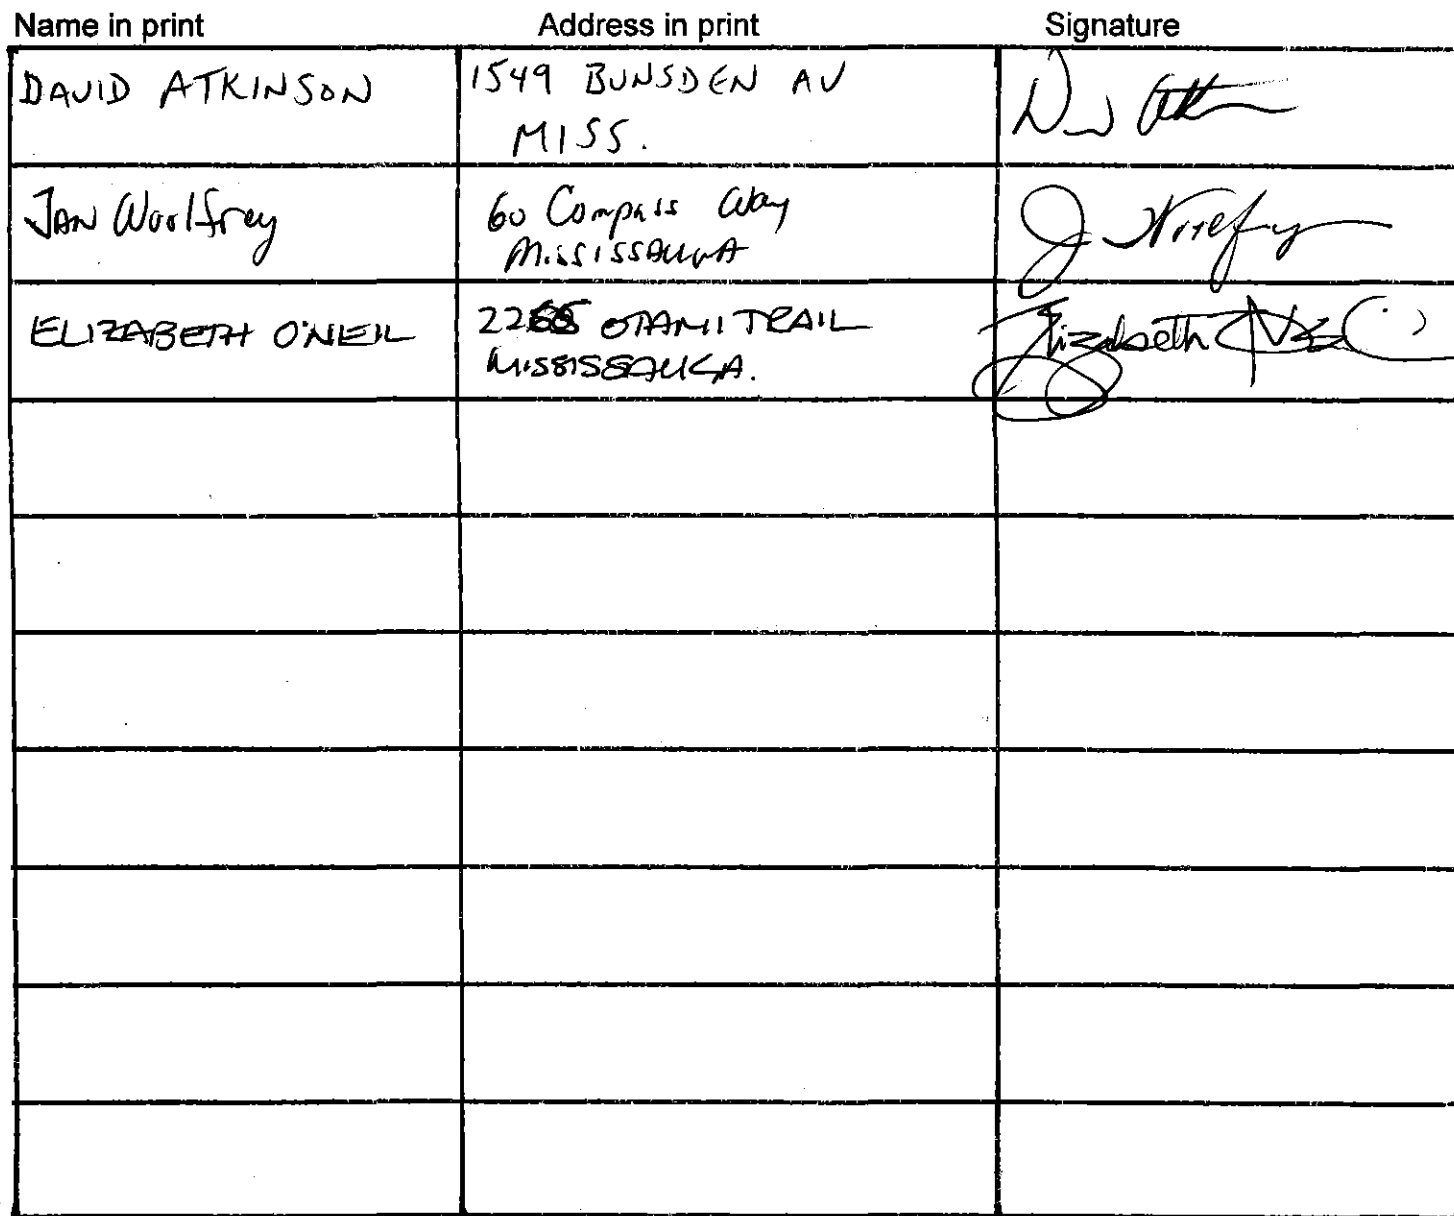 Name in print Address in print Signature
DAVID ATKINSON 1549 BUNSDEN AV
MISS.
JAN Woolfrey 60 Compass Way
MISSISSAUGA
J Woolfrey
ELIZABETH O'NEIL OTAMI TRAIL
MISSISSAUGA.
Elizabeth